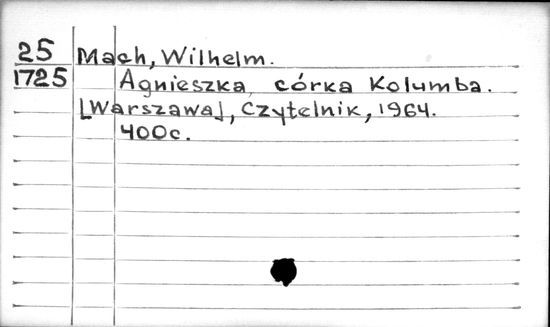 25 Mach, Wilhelm.
1725 Agnieszka, córka Kolumba.
[Warszawa], Czytelnik, 1964.
400c.